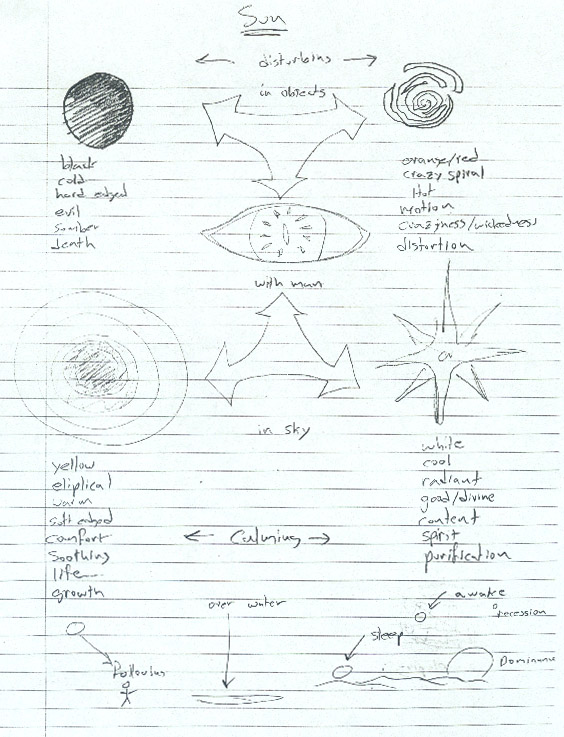 Sun
disturbing
in objects
black
cold
hard edged
evil
somber
death
orange/red
crazy spiral
Hot
motion
craziness/wickedness
distortion
with man
in sky
yellow
eliptical
warm
soft edged
comfort
soothing
life
growth
white
cool
radiant
good/divine
content
spirit
purification
Calming
over water
awake
recession
sleep
Dominance
Following